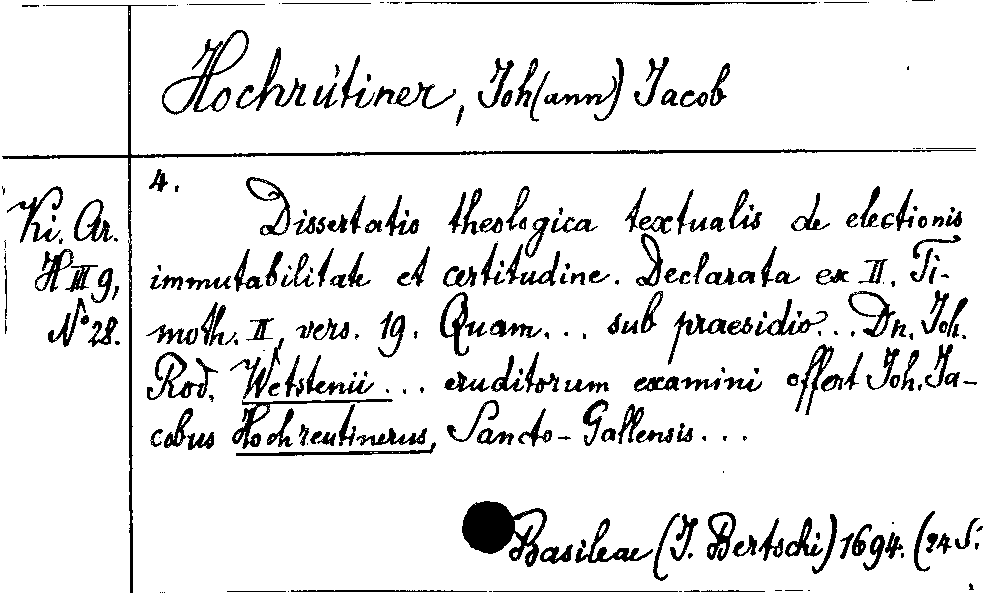 Hochrütiner, Joh(ann) Jacob
4.
Ki. Ar.
H III 9,
No 28.
Dissertatio theologica textualis de electionis
immutabilitate et certitudine. Declarata ex II. Ti-
moth. II, vers. 19. Quam... sub praesidio... Dn. Joh.
Rod. Wetstenii ... eruditorum examini offert Joh. Ja-
cobus Hochreutinerus, Sancto-Gallensis...
Basileae (J. Bertschi) 1694. (24 S.